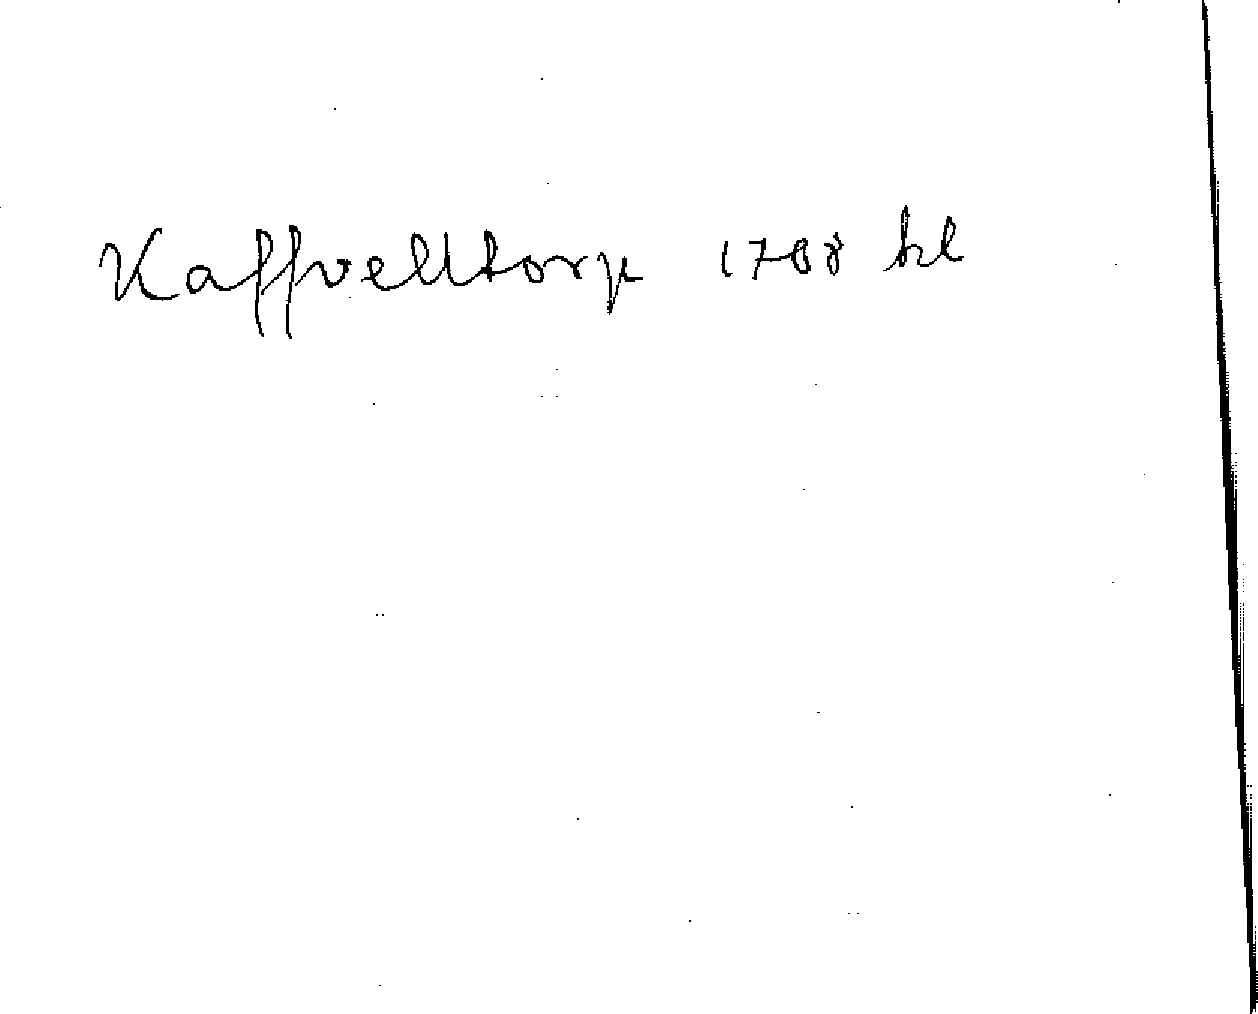 Kaffvelltorp 1788 hl